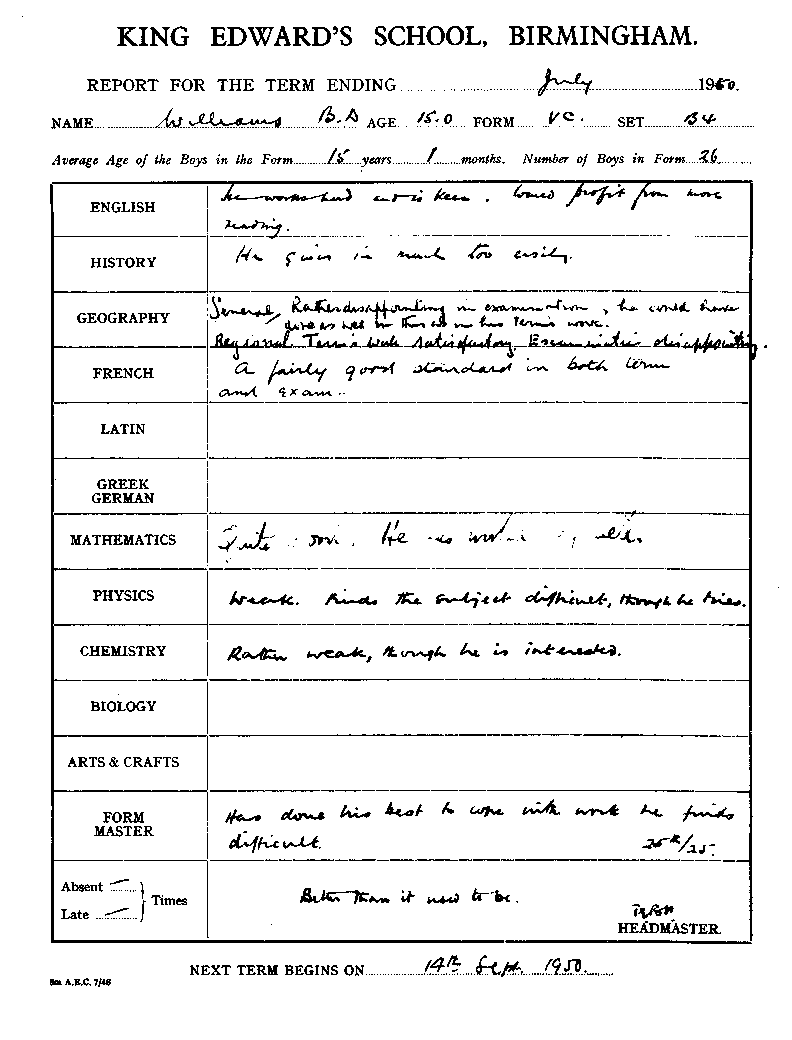 KING EDWARD'S SCHOOL, BIRMINGHAM.
REPORT FOR THE TERM ENDING July 1950.
NAME Williams B.D AGE 15.0 FORM VC. SET B4
Average Age of the Boys in the Form 15 years 1 months. Number of Boys in Form 26
ENGLISH He works hard and is keen. Would profit from more
reading.
HISTORY He gives in much too easily.
GEOGRAPHY General, Rather disappointing in examination, he could have
done as well in this as in his Term's work.
Regional Term's work satisfactory. Examination disappointing.
FRENCH A fairly good standard in both term
and exam.
LATIN
GREEK
GERMAN
MATHEMATICS Quite He has
PHYSICS Weak. Finds the subject difficult, though he tries.
CHEMISTRY Rather weak, though he is interested.
BIOLOGY
ARTS & CRAFTS
FORM
MASTER
Has done his best to cope with work he finds
difficult. 25th/25.
Absent
Late
Times
Better than it used to be.
HEADMASTER.
NEXT TERM BEGINS ON 14th Sept. 1950.
5m A.E.C. 7/46